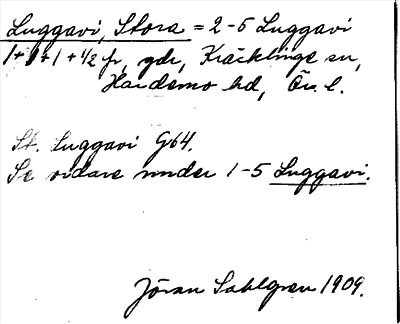 Luggavi, Stora = 2-5 Luggavi
1+1+1+1/2 fr, gdr, Kräcklinge sn,
Hardemo hd, Ör. l.
St. Luggavi G64.
Se vidare under 1-5 Luggavi.
Jöran Sahlgren 1909.